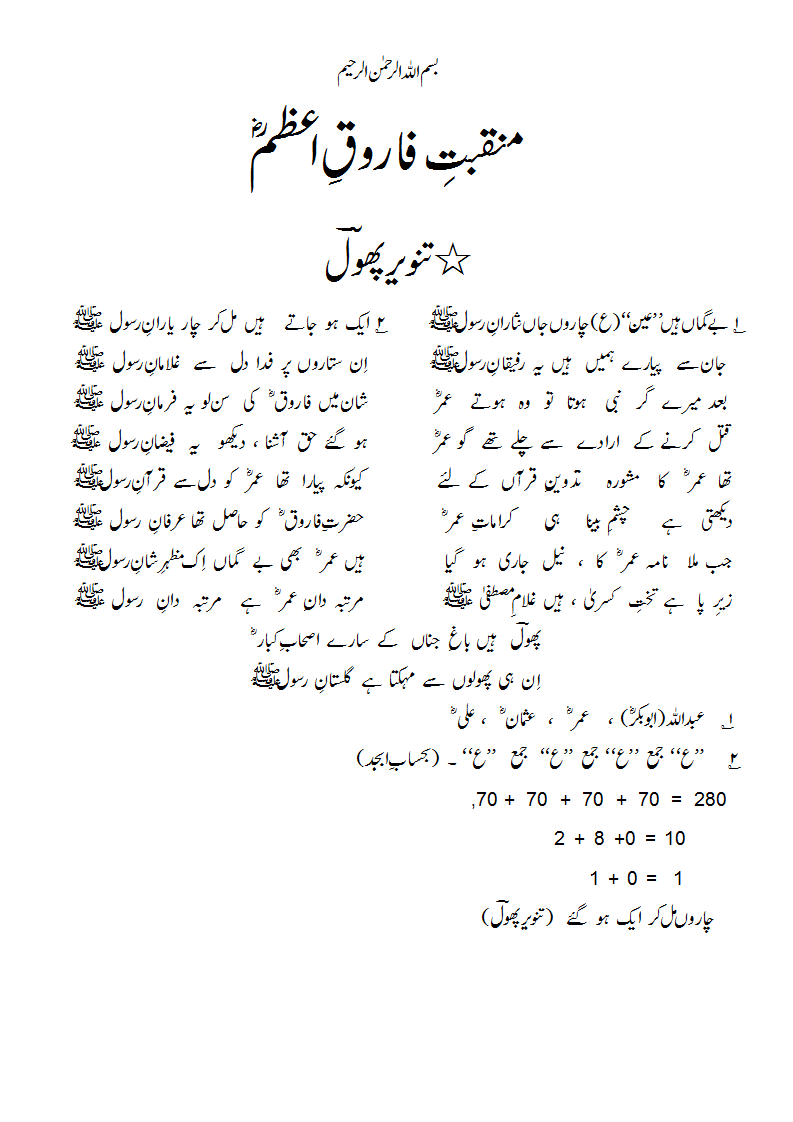 بسم اللہ الرحمٰن الرحیم
منقبتِ فاروقِ اعظمؓ
☆ تنویر پھولؔ
۱؎ بے گماں ہیں ’’عین‘‘ (ع) چاروں جاں نثارانِ رسول ﷺ ۲؎ ایک ہو جاتے ہیں مل کر چار یارانِ رسول ﷺ
جان سے پیارے ہمیں ہیں یہ رفیقانِ رسول ﷺ اِن ستاروں پر فدا دل سے غلامانِ رسول ﷺ
بعد میرے گر نبی ہوتا تو وہ ہوتے عمرؓ شان میں فاروقؓ کی سن لو یہ فرمانِ رسول ﷺ
قتل کرنے کے ارادے سے چلے تھے گو عمرؓ ہو گئے حق آشنا ، دیکھو یہ فیضانِ رسول ﷺ
تھا عمرؓ کا مشورہ تدوینِ قرآں کے لئے کیونکہ پیارا تھا عمرؓ کو دل سے قرآنِ رسول ﷺ
دیکھتی ہے چشمِ بینا ہی کراماتِ عمرؓ حضرتِ فاروقؓ کو حاصل تھا عرفانِ رسول ﷺ
جب ملا نامہ عمرؓ کا ، نیل جاری ہو گیا ہیں عمرؓ بھی بے گماں اِک مظہرِ شانِ رسول ﷺ
زیرِ پا ہے تختِ کسریٰ ، ہیں غلامِ مصطفیٰ ﷺ مرتبہ دانِ عمرؓ ہے مرتبہ دانِ رسول ﷺ
پھولؔ ہیں باغِ جناں کے سارے اصحابِ کبارؓ
اِن ہی پھولوں سے مہکتا ہے گلستانِ رسول ﷺ
۱؎ عبداللہ (ابوبکرؓ) ، عمرؓ ، عثمانؓ ، علیؓ
۲؎ ’’ع‘‘ جمع ’’ع‘‘ جمع ’’ع‘‘ جمع ’’ع‘‘ ۔ (بحسابِ ابجد)
,70 + 70 + 70 + 70 = 280
2 + 8 +0 = 10
1 + 0 = 1
چاروں مل کر ایک ہو گئے (تنویر پھولؔ)